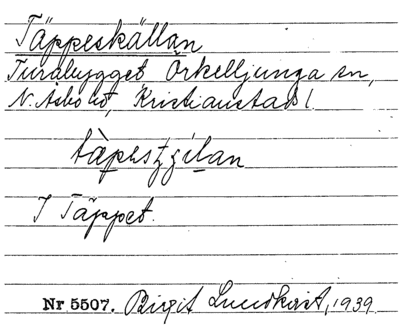 Täppeskällan
Turabygget Örkelljunga sn,
N. Åsbo hd, Kristianstads l.
I Täppet.
Nr 5507. Birgit Lundkvist, 1939